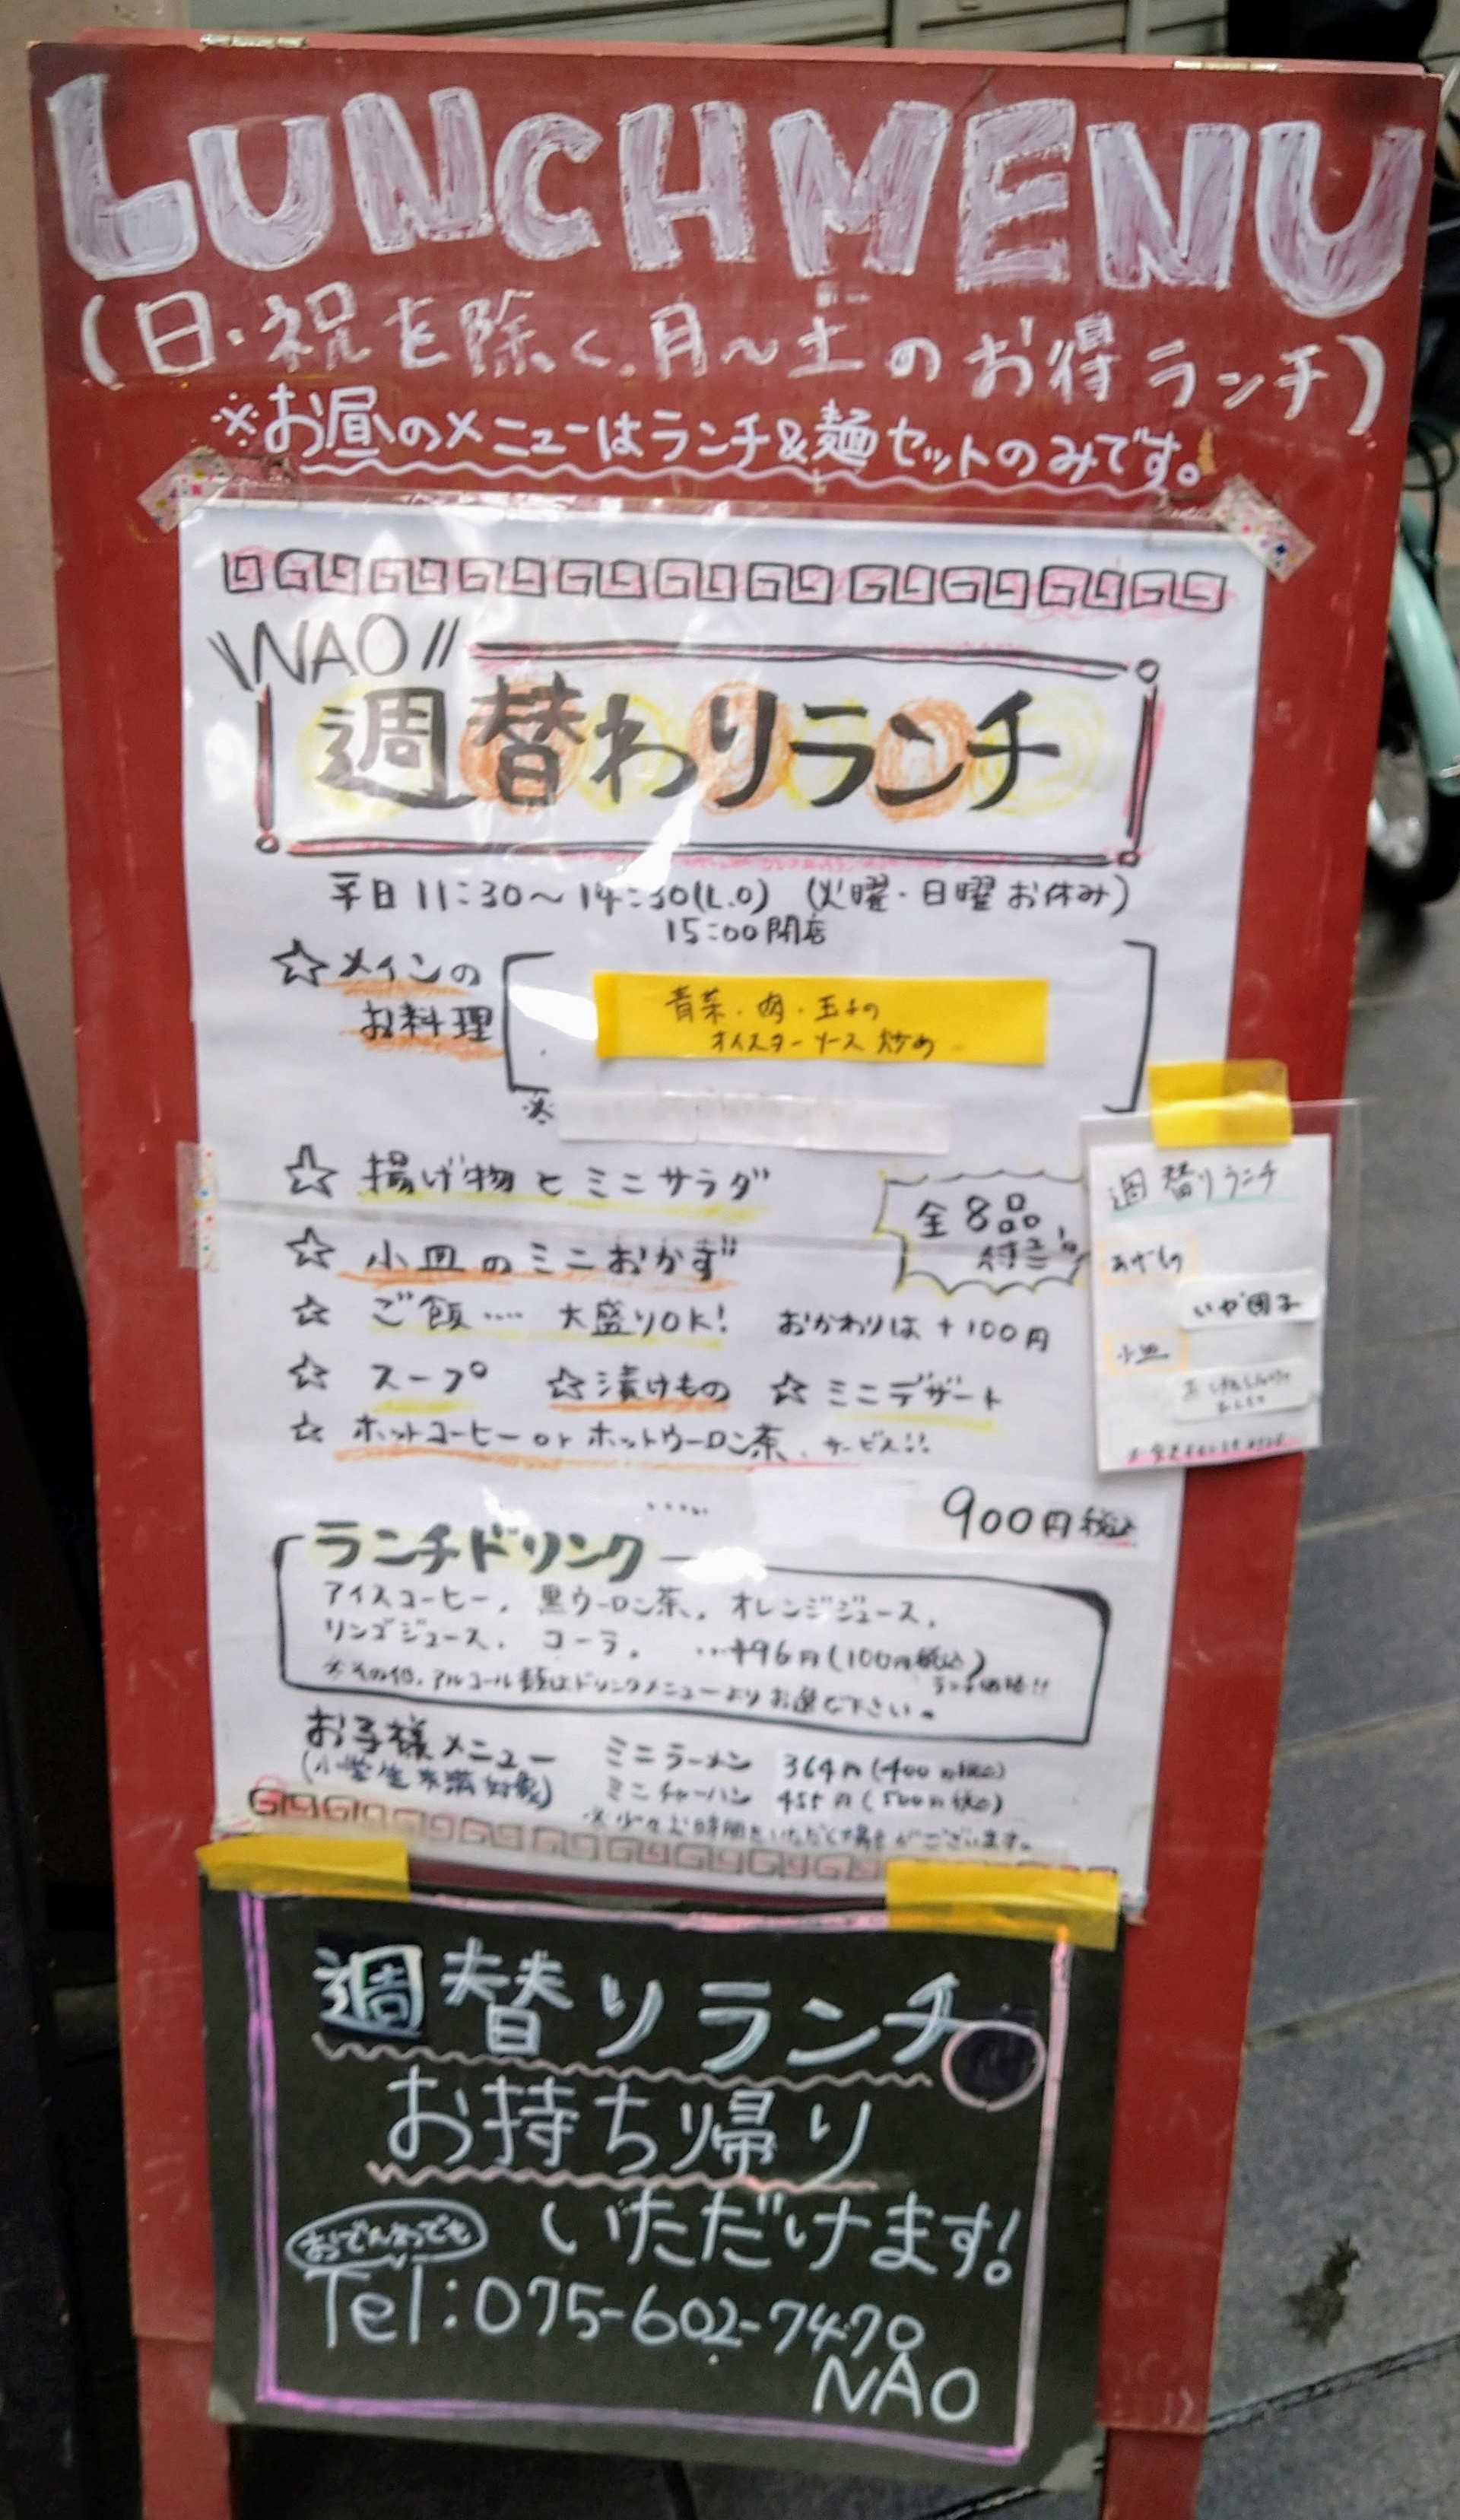 LUNCHMENU
(日・祝を除く、月～土のお得ランチ)
※お昼のメニューはランチ&麺セットのみです。
\\NAO//
週替わりランチ
平日 11:30～14:30(L.O) (火曜・日曜お休み)
15:00閉店
☆メインの
お料理
青菜・肉・玉子の
オイスターソース炒め
※
☆ 揚げ物とミニサラダ
全8品
付き
☆ 小皿のミニおかず
☆ ご飯‥‥ 大盛りOK! おかわりは+100円
☆ スープ ☆漬けもの ☆ミニデザート
☆ ホットコーヒー or ホットウーロン茶、サービス!!
900円税込
週替りランチ
あげもの
いか団子
小皿
ランチドリンク
アイスコーヒー、黒ウーロン茶、オレンジジュース、
リンゴジュース、コーラ、 …+96円(100円税込)
ランチ価格!!
※その他、アルコール類はドリンクメニューよりお選び下さい。
お子様メニュー
(小学生未満対象)
ミニラーメン 364円(400円税込)
ミニチャーハン 455円(500円税込)
※少々お時間をいただく場合がございます。
週替りランチ
お持ち帰り
いただけます!
おでんわでも
Tel:075-602-7470
NAO